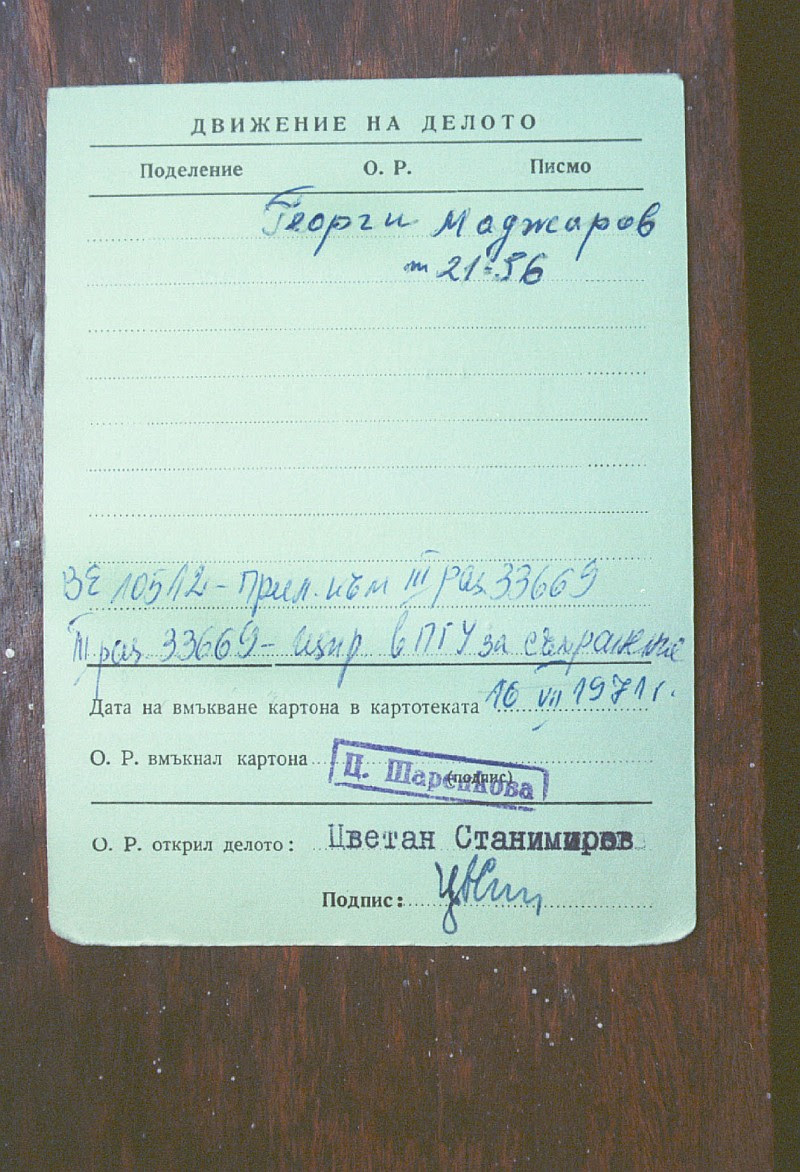 ДВИЖЕНИЕ НА ДЕЛОТО
Поделение О. Р. Писмо
Георги Маджаров
т 21-56
ВЕ 10512 - прил. към III раз 33669
III раз 33669 - в ПГУ за съхранение
Дата на вмъкване картона в картотеката 16 VII 1971 г.
О. Р. вмъкнал картона Ц. Шаренкова
(подпис)
О. Р. открил делото: Цветан Станимиров
Подпис: